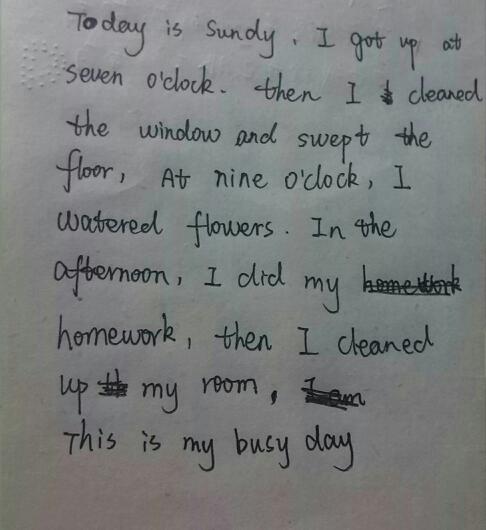 Today is Sundy. I got up at
seven o'clock. then I cleaned
the window and swept the
floor, At nine o'clock, I
watered flowers. In the
afternoon, I did my homework
homework, then I cleaned
up my room, I am
This is my busy day